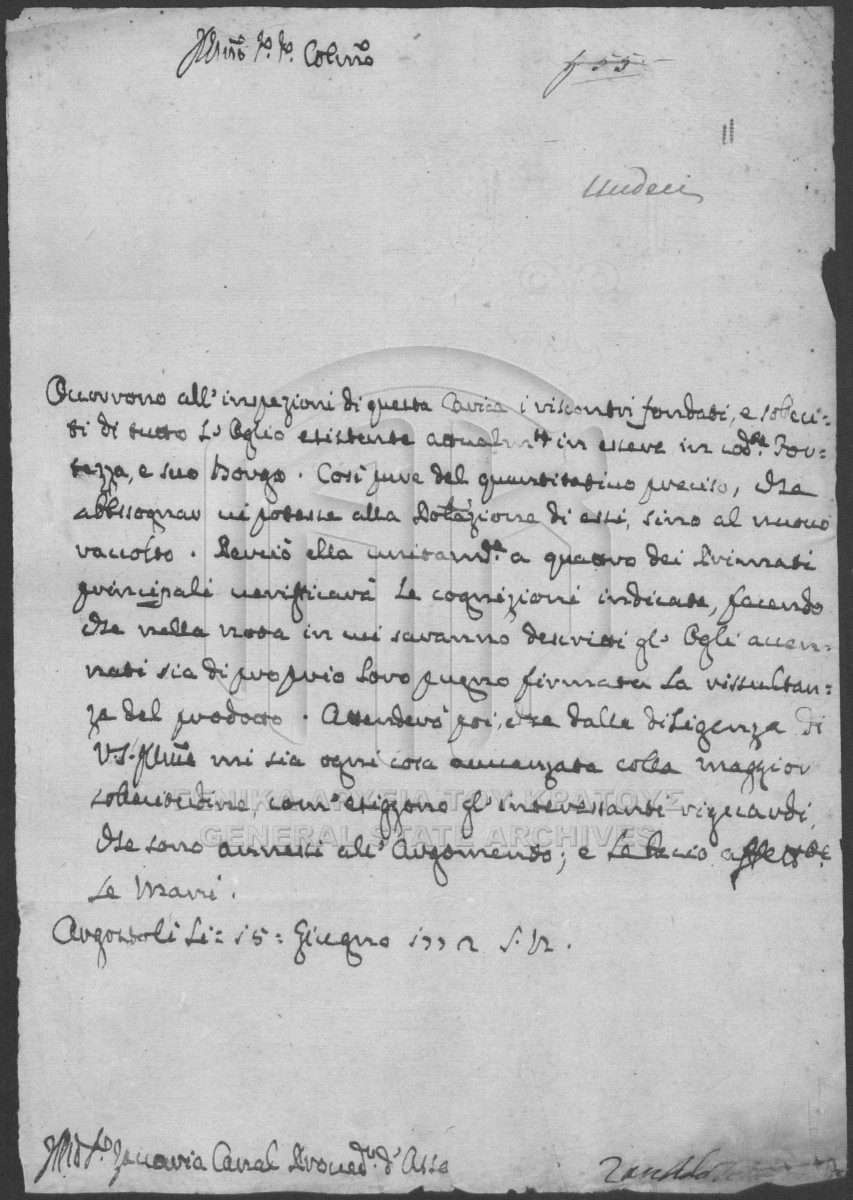 Illmo Sr. Sr. Colmo
455
11
Undeci
Occorrono all'inspezioni di questa Carica i riscontri fondati, e solleci-
ti di tutto l'Oglio esistente attualmte in essere in cod.sta For-
tezza, e suo Borgo. Così pure del quantitativo preciso, che
abbisognar vi potesse alla Dotazione di essi, sino al nuovo
raccolto. Perciò ella unitamte a quattro dei Primati
principali verifficarà le cognizioni indicate, facendo
che nella nota in cui saranno descritti gl'Ogli accen-
nati sia di proprio loro pugno firmata la rissultan-
za del prodotto. Attenderò poi, che dalla diligenza di
V.S. Illma mi sia ogni cosa avvanzata colla maggior
sollecitudine, com'esiggono gl'interessanti riguardi,
che sono annessi all'Argomento; e le baccio affettte
le Mani.
Argostoli Li= 15= Giugno 1772 S.N.
ΓΕΝΙΚΑ ΑΡΧΕΙΑ ΤΟΥ ΚΡΑΤΟΥΣ
GENERAL STATE ARCHIVES
Zaccaria Canal Provedr. d'Asso